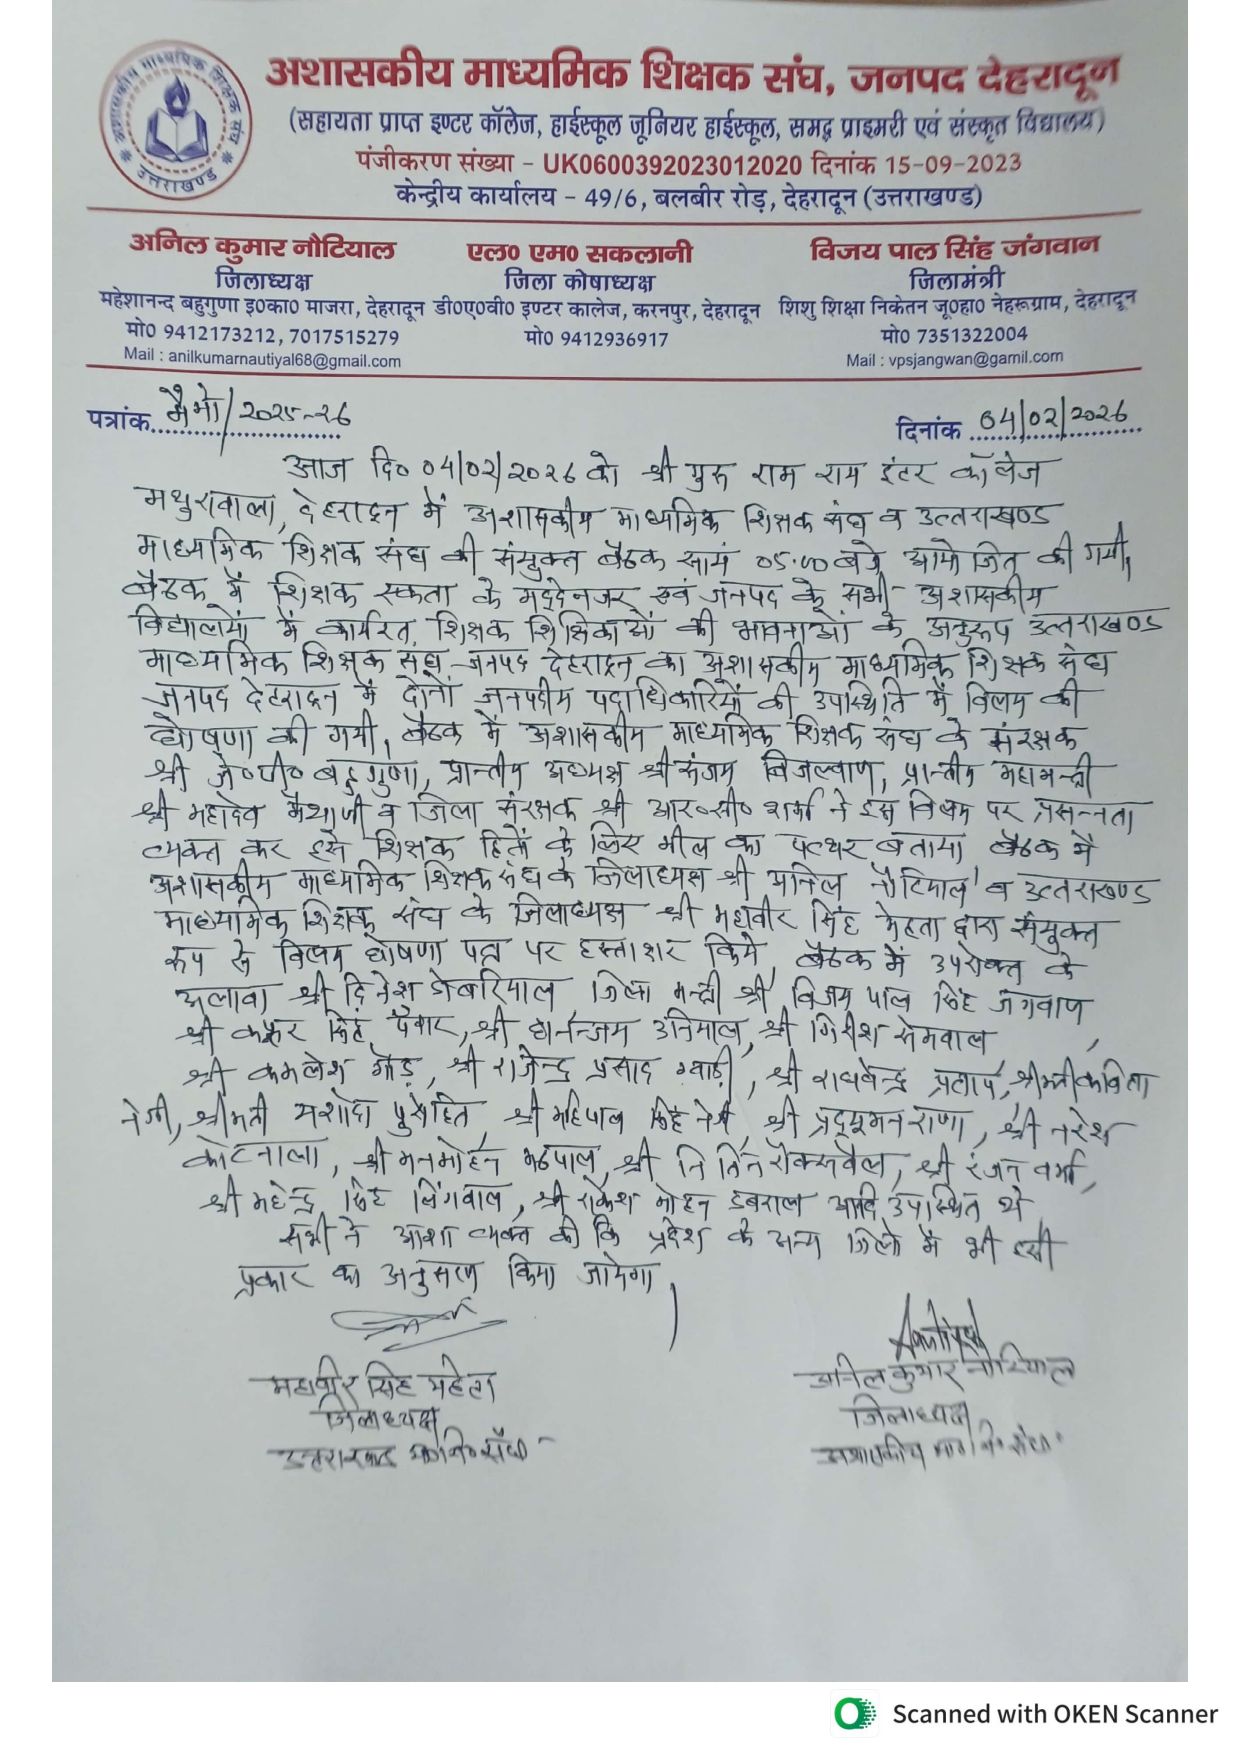 अशासकीय माध्यमिक शिक्षक संघ, जनपद देहरादून
(सहायता प्राप्त इण्टर कॉलेज, हाईस्कूल जूनियर हाईस्कूल, समद्ध प्राइमरी एवं संस्कृत विद्यालय)
पंजीकरण संख्या - UK0600392023012020 दिनांक 15-09-2023
केन्द्रीय कार्यालय - 49/6, बलबीर रोड़, देहरादून (उत्तराखण्ड)
अशासकीय माध्यमिक शिक्षक संघ
उत्तराखण्ड
अनिल कुमार नौटियाल
जिलाध्यक्ष
महेशानन्द बहुगुणा इ०का० माजरा, देहरादून
मो० 9412173212, 7017515279
Mail : anilkumarnautiyal68@gmail.com
एल० एम० सकलानी
जिला कोषाध्यक्ष
डी०ए०वी० इण्टर कालेज, करनपुर, देहरादून
मो० 9412936917
विजय पाल सिंह जंगवान
जिलामंत्री
शिशु शिक्षा निकेतन जू०हा० नेहरूग्राम, देहरादून
मो० 7351322004
Mail : vpsjangwan@gamil.com
पत्रांक मैमो/2025-26
दिनांक 04/02/2026
आज दि० 04/02/2026 को श्री गुरु राम राय इंटर कॉलेज
मथुरावाला, देहरादून में अशासकीय माध्यमिक शिक्षक संघ व उत्तराखण्ड
माध्यमिक शिक्षक संघ की संयुक्त बैठक सायं 05:00 बजे आयोजित की गयी,
बैठक में शिक्षक एकता के मद्देनजर एवं जनपद के सभी अशासकीय
विद्यालयों में कार्यरत शिक्षक शिक्षिकाओं की भावनाओं के अनुरूप उत्तराखण्ड
माध्यमिक शिक्षक संघ जनपद देहरादून का अशासकीय माध्यमिक शिक्षक संघ
जनपद देहरादून में दोनों जनपदीय पदाधिकारियों की उपस्थिति में विलय की
घोषणा की गयी, बैठक में अशासकीय माध्यमिक शिक्षक संघ के संरक्षक
श्री जे०पी० बहुगुणा, प्रान्तीय अध्यक्ष श्री संजय बिजल्वाण, प्रान्तीय महामन्त्री
श्री महादेव मैथाणी व जिला संरक्षक श्री आर०सी० शर्मा ने इस विषय पर प्रसन्नता
व्यक्त कर इसे शिक्षक हितों के लिए मील का पत्थर बताया बैठक में
अशासकीय माध्यमिक शिक्षक संघ के जिलाध्यक्ष श्री अनिल नौटियाल व उत्तराखण्ड
माध्यमिक शिक्षक संघ के जिलाध्यक्ष श्री महावीर सिंह मेहता द्वारा संयुक्त
रूप से विलय घोषणा पत्र पर हस्ताक्षर किये, बैठक में उपरोक्त के
अलावा श्री दिनेश डोबरियाल जिला मन्त्री श्री विजय पाल सिंह जंगवाण
श्री सिंह पंवार, श्री धनन्जय उनियाल, श्री गिरीश सेमवाल,
श्री कमलेश गौड़, श्री राजेन्द्र प्रसाद ग्वाड़ी, श्री राघवेन्द्र प्रताप, श्रीमती कविता
नेगी, श्रीमती यशोदा पुरोहित श्री महिपाल सिंह नेगी, श्री प्रद्युमन राणा, श्री नरेश
कोटनाला, श्री मनमोहन मढपाल, श्री नितिन रौक्सवैल, श्री रंजन वर्मा,
श्री महेन्द्र सिंह लिंगवाल, श्री राकेश मोहन डबराल आदि उपस्थित थे
सभी ने आशा व्यक्त की कि प्रदेश के अन्य जिलों में भी इसी
प्रकार का अनुसरण किया जायेगा,
महावीर सिंह मेहता
जिलाध्यक्ष
उत्तराखण्ड मा०शि०संघ
अनिल कुमार नौटियाल
जिलाध्यक्ष
अशासकीय मा० शि० संघ
Scanned with OKEN Scanner